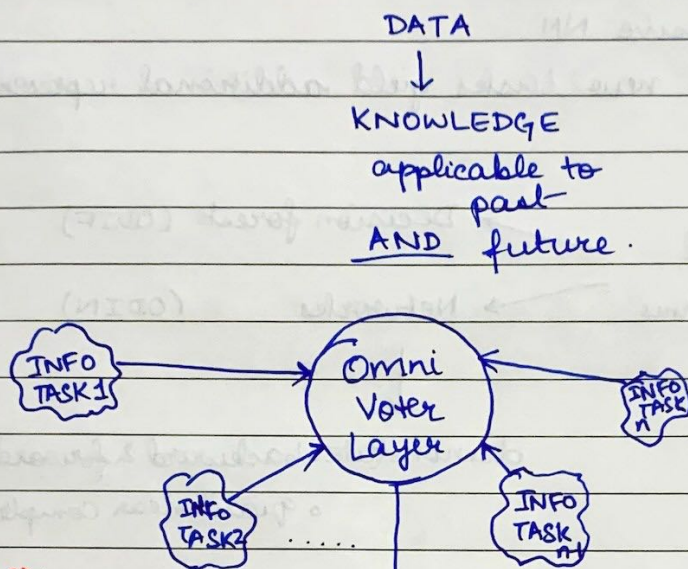 DATA
KNOWLEDGE
applicable to
past
AND future.
INFO
TASK1
Omni
Voter
Layer
INFO
TASK
n
INFO
TASK2
.....
INFO
TASK
n-1